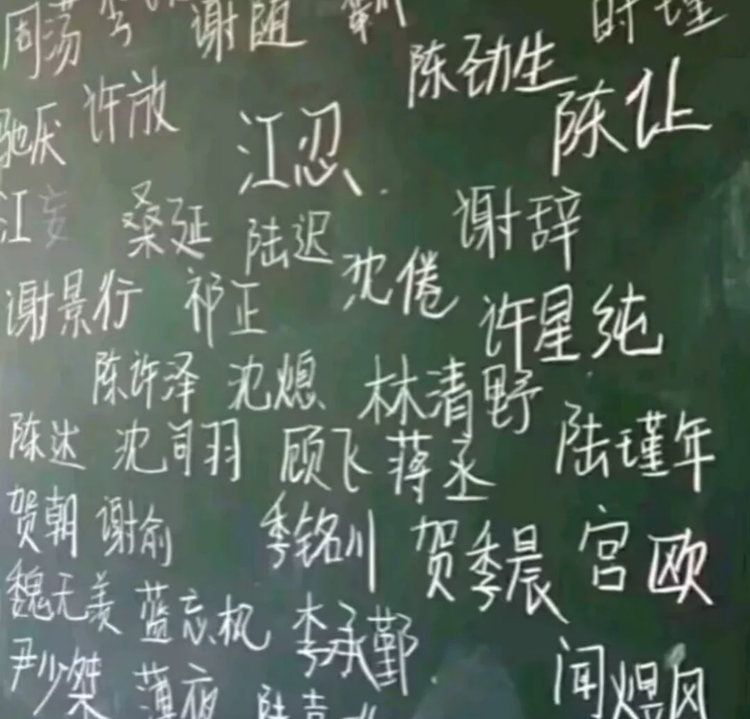 周荡 谢随
陈劲生
驰厌 许放 江忍 陈让
江妄 桑延 陆迟 谢辞
谢景行 祁正 沈倦 许星纯
陈许泽 沈熄 林清野
陈达 沈司羽 顾飞 蒋丞 陆瑾年
贺朝 谢俞 季铭川 贺季晨 宫欧
魏无羡 蓝忘机 李承鄞
尹少桀 薄夜 闻煜风